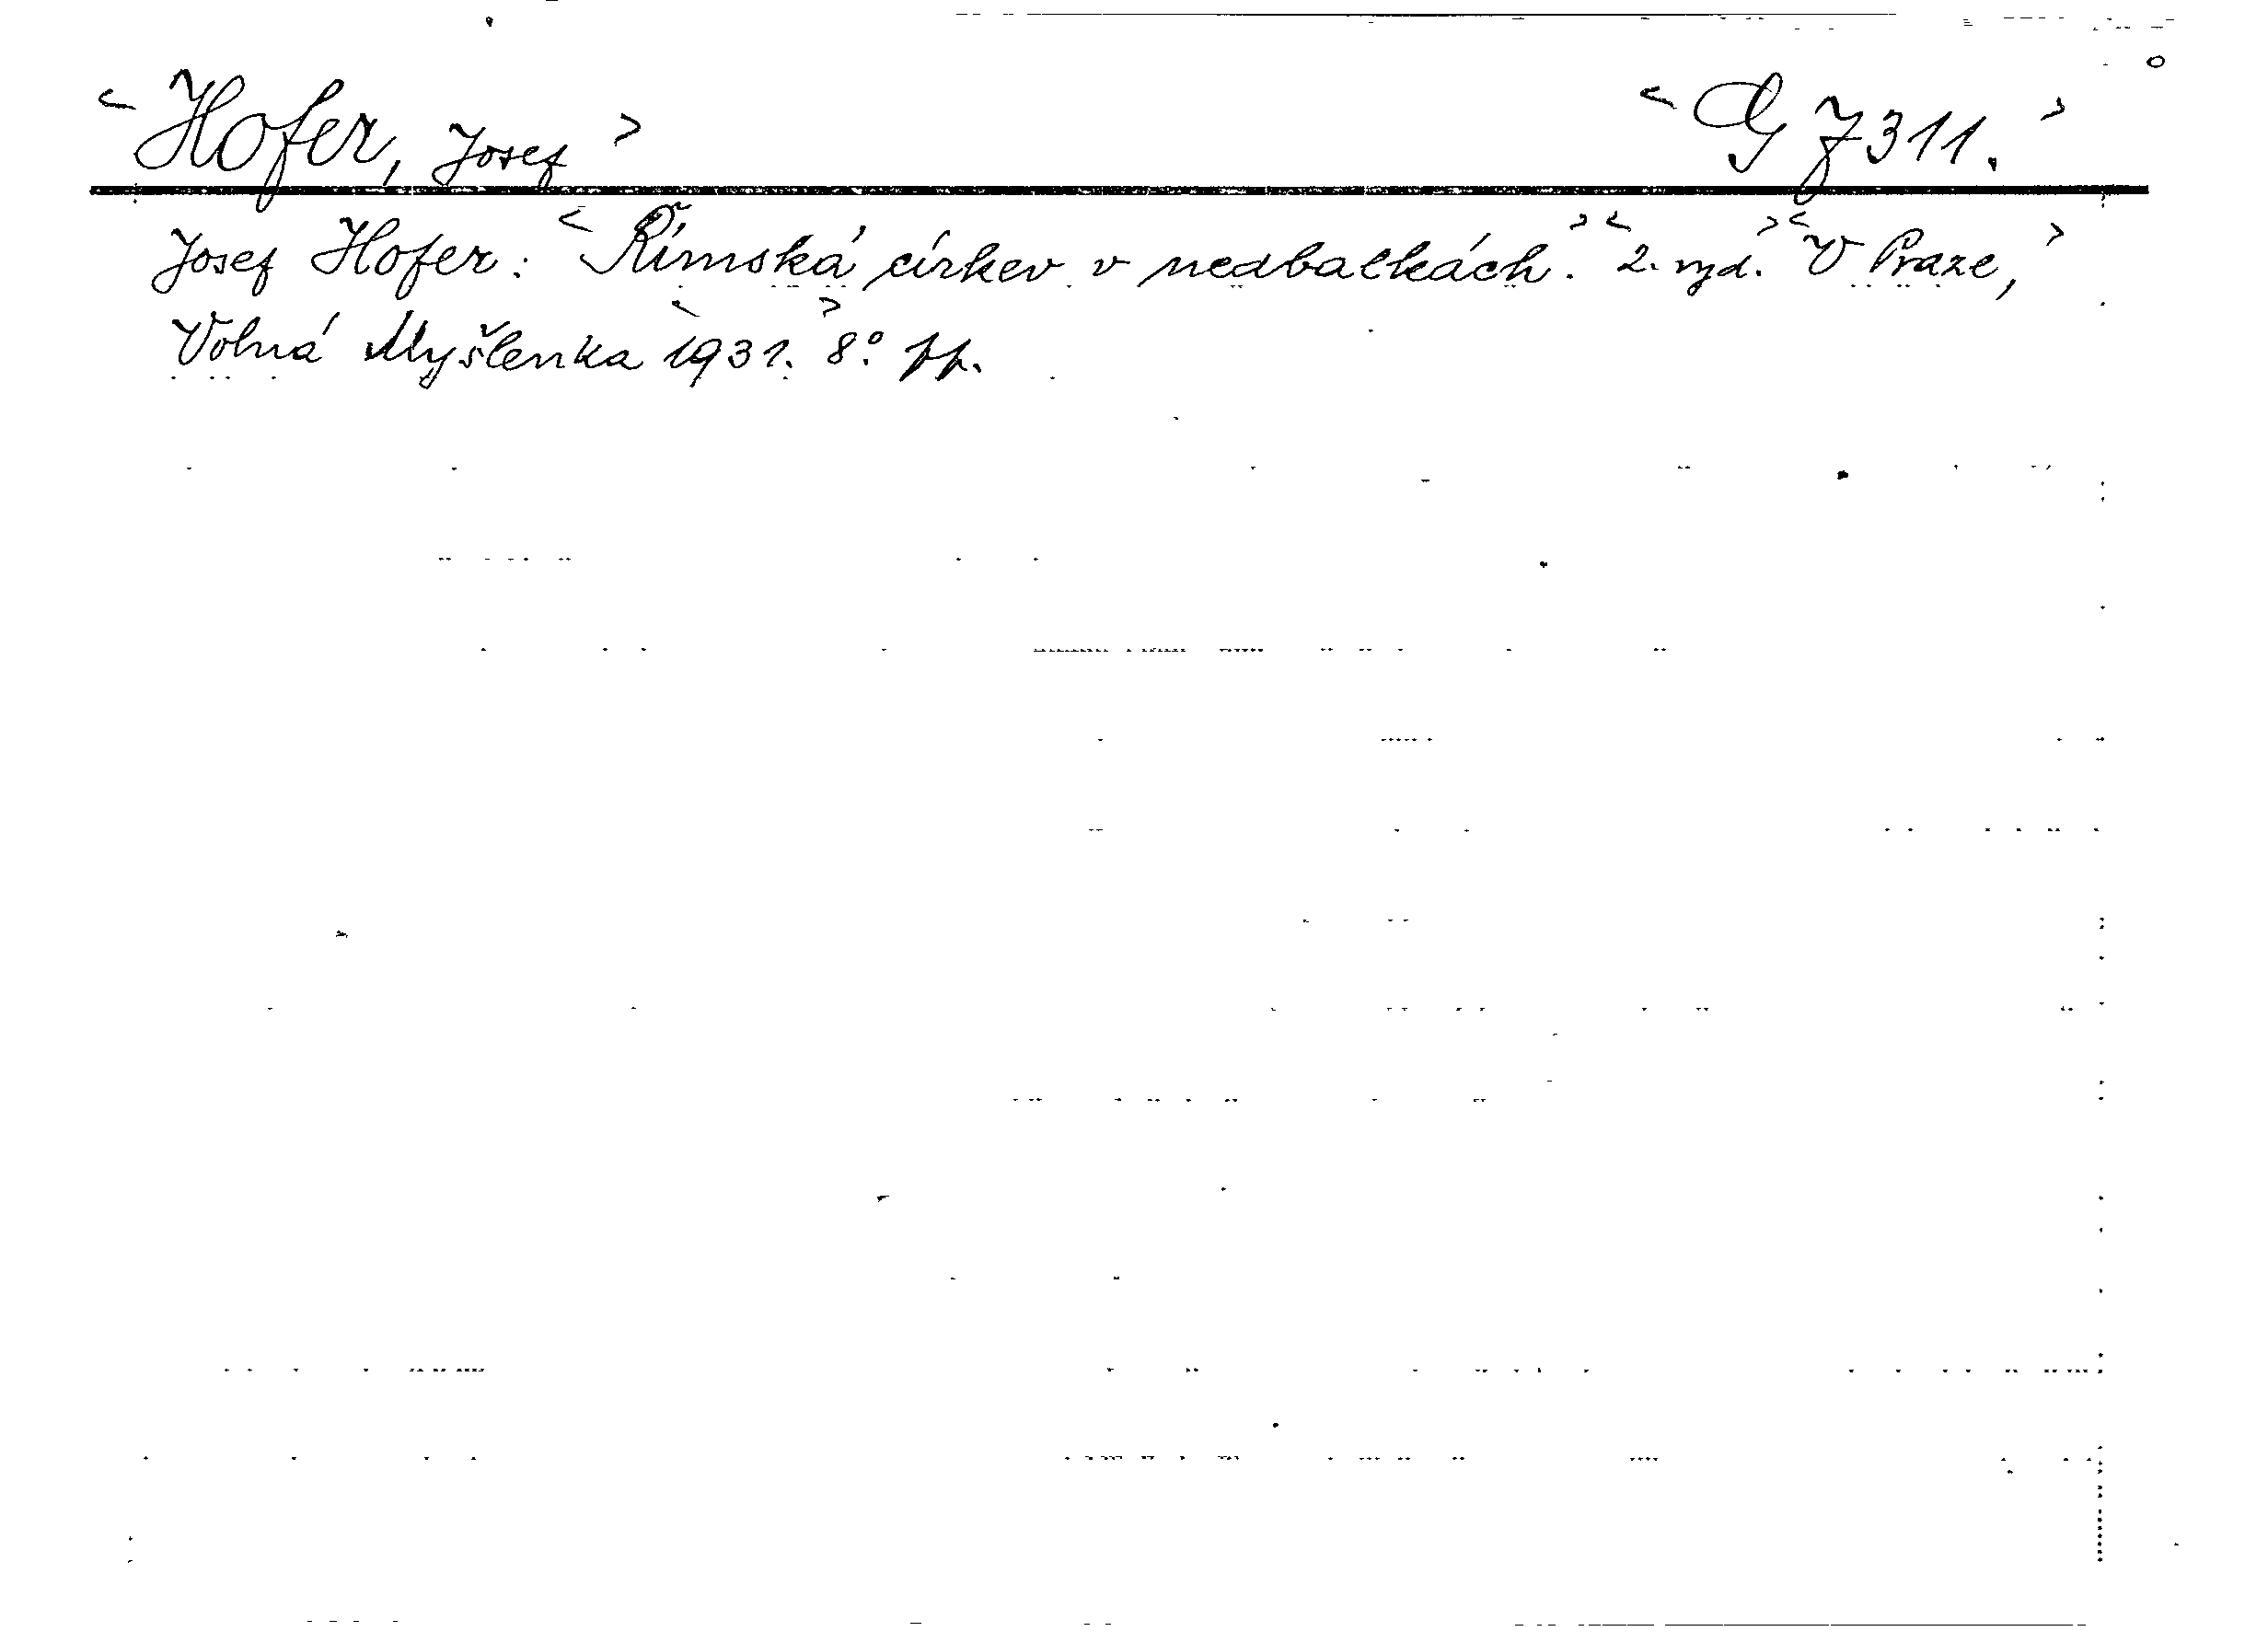 <Hofer, Josef> <G 7311.>
Josef Hofer: <Římská církev v nedbalkách.> <2. vyd.> <V Praze,>
Volná Myšlenka <1931.> 8°. pp.